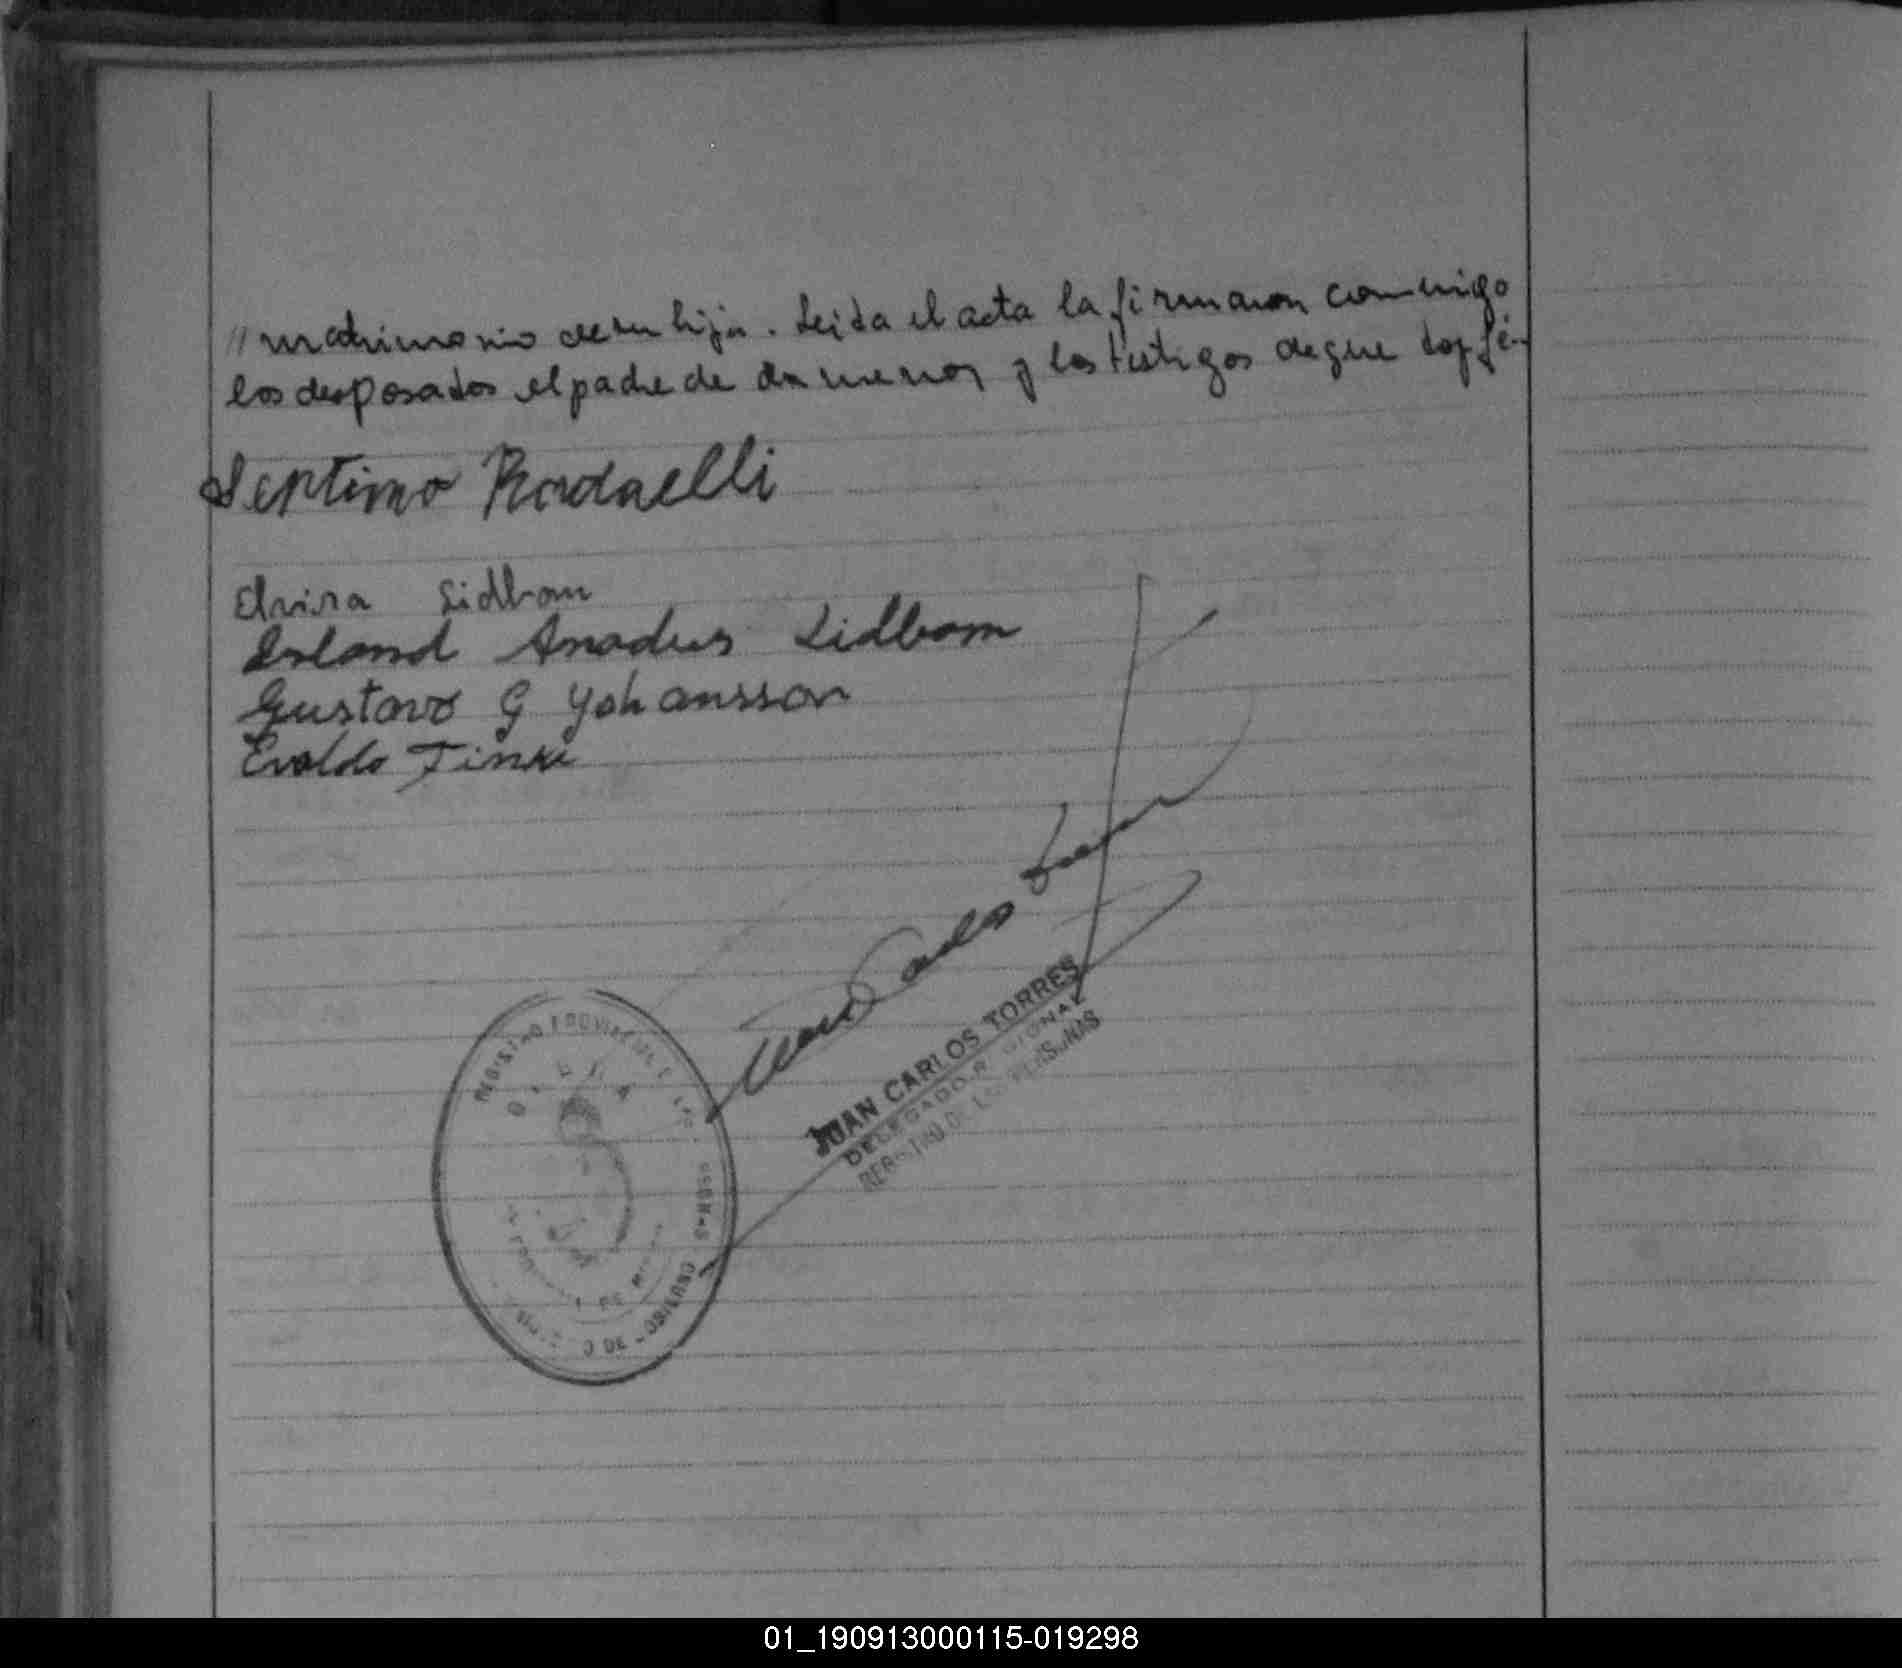 // matrimonio de su hija. Leida el acta la firmaron conmigo
los desposados el padre de la menor y los testigos de que doy fé.-
Septimo Radaelli
Elvira Lidbom
Erland Amadeus Lidbom
Gustavo G Yohansson
Evaldo
Juan Carlos Torres
JUAN CARLOS TORRES
DELEGADO R GIONAL
REGISTRO DE LAS PERSONAS
REGISTRO PROVINCIAL
OBERA
DE MIS
DE GOBIERNO
01_190913000115-019298